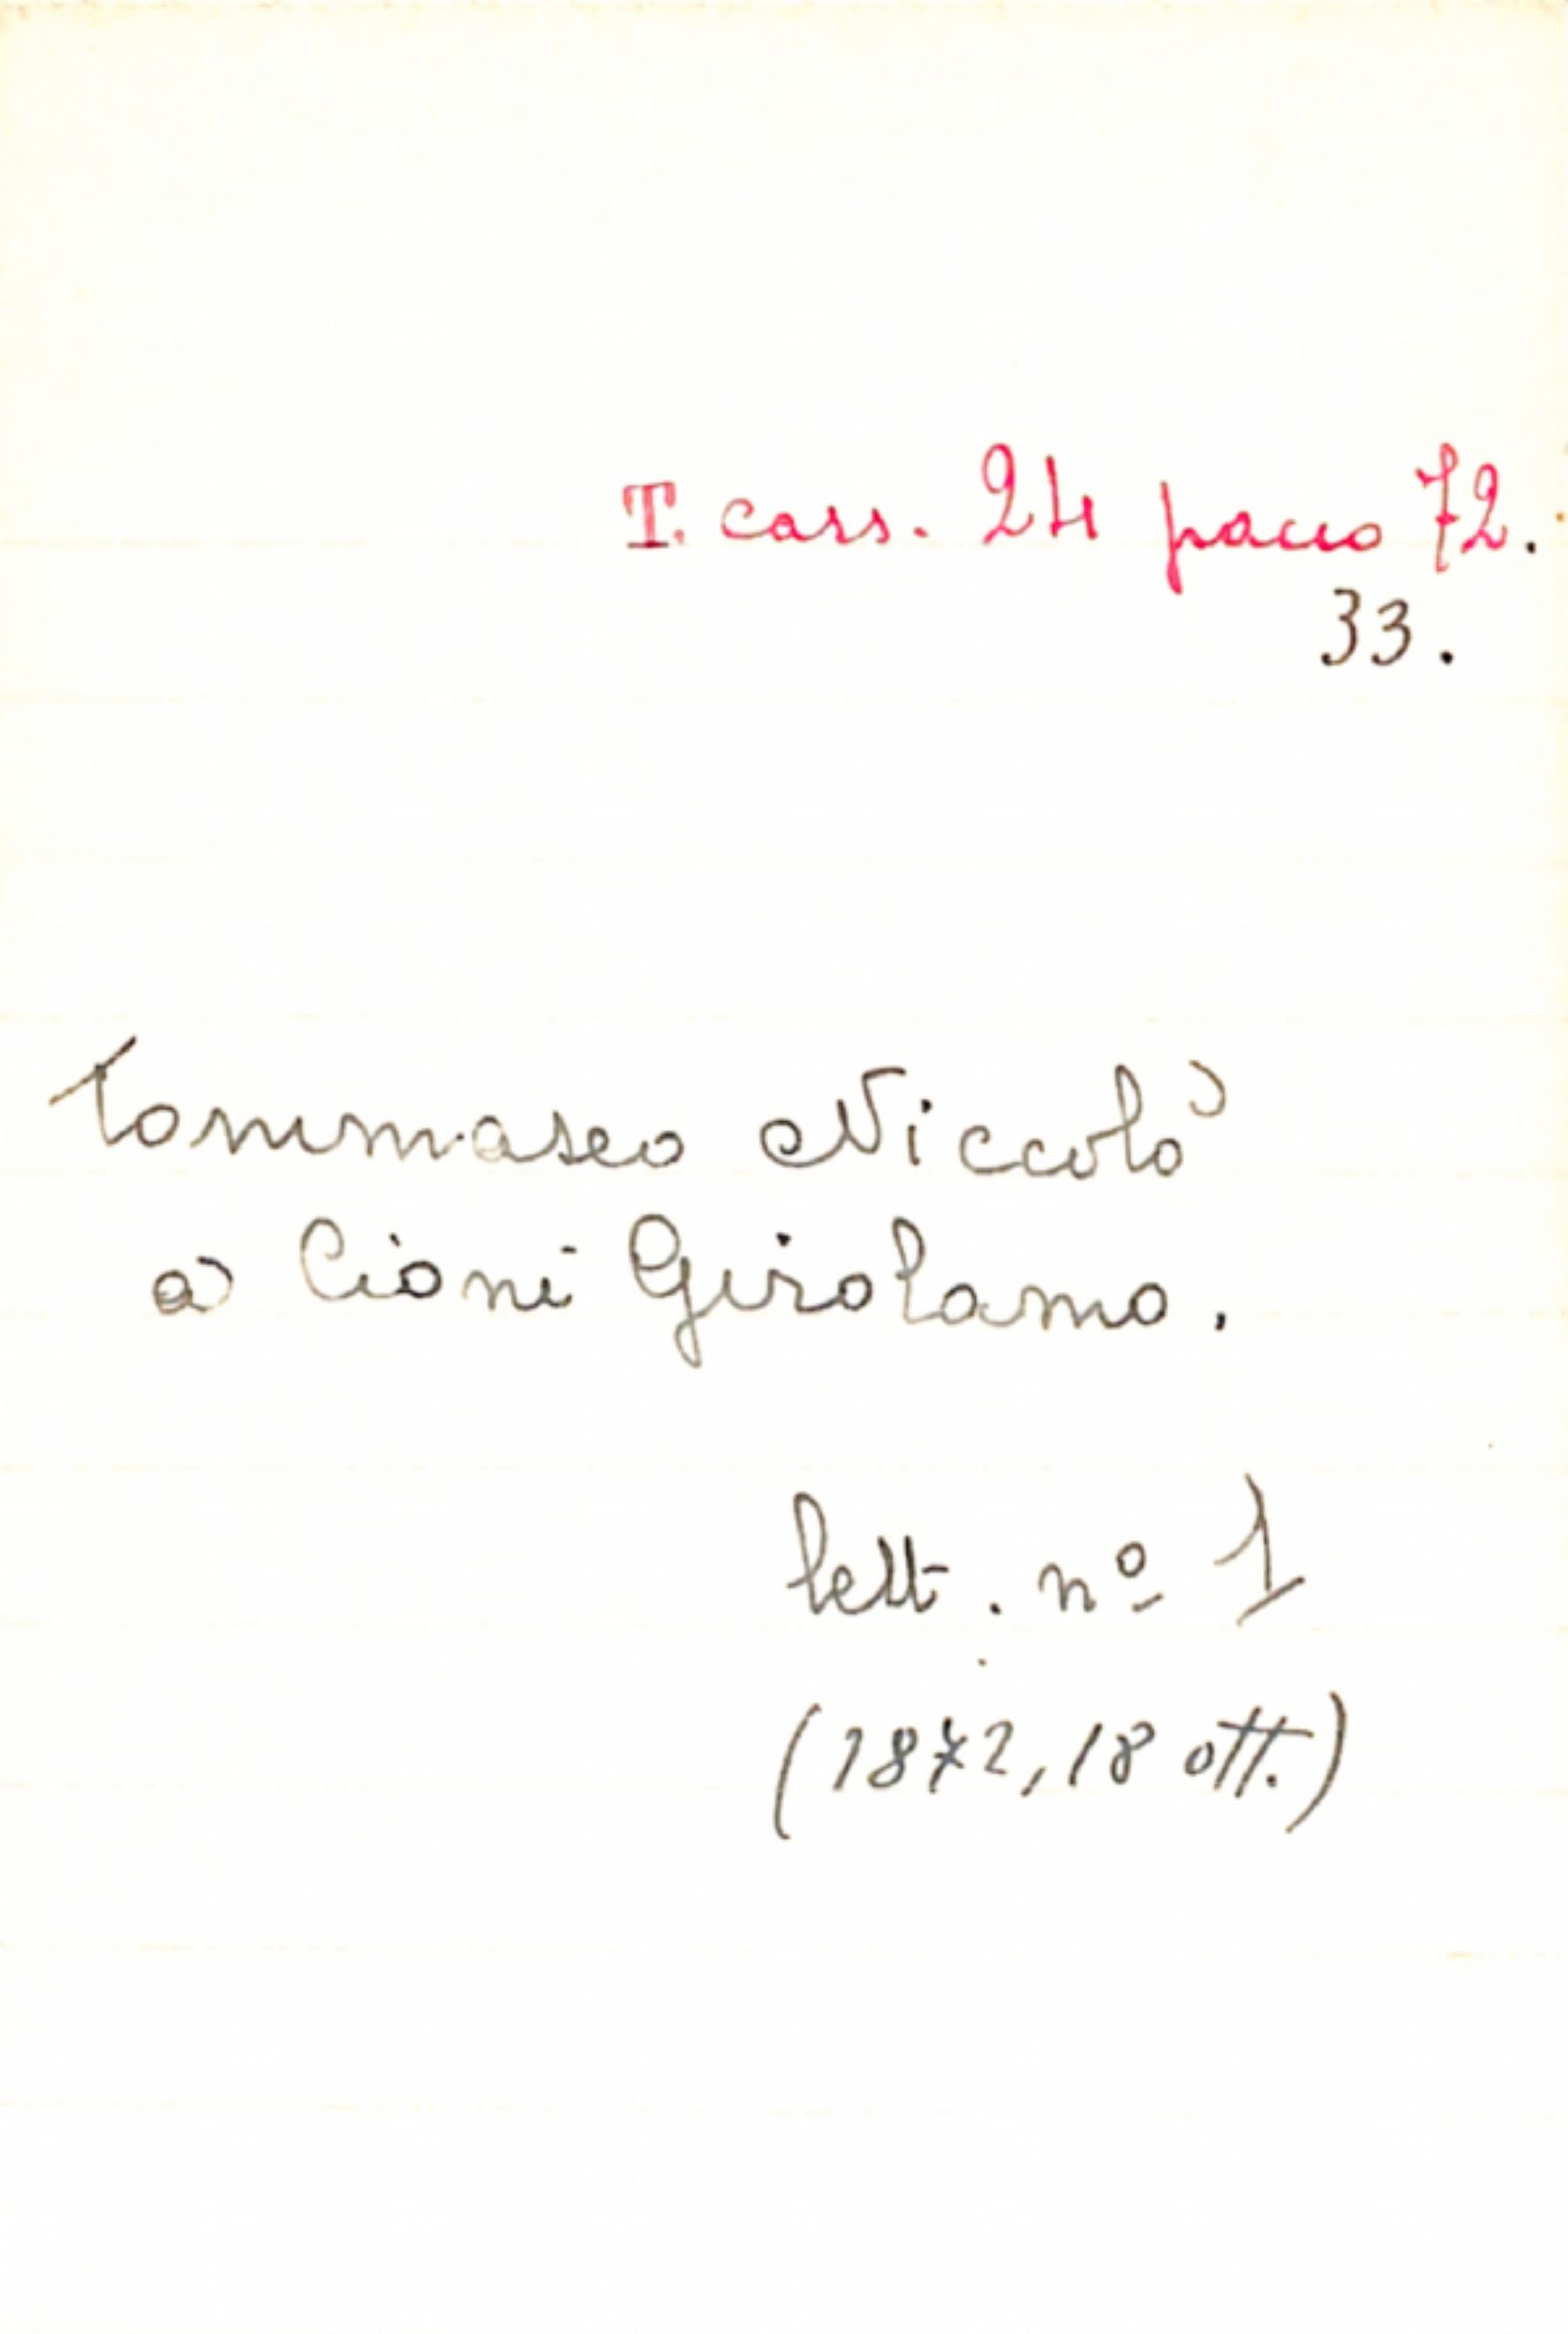 T. cass. 24 pacco 72.
33.
Tommaseo Niccolò
a Cioni Girolamo.
lett. nº 1
(1872, 18 ott.)